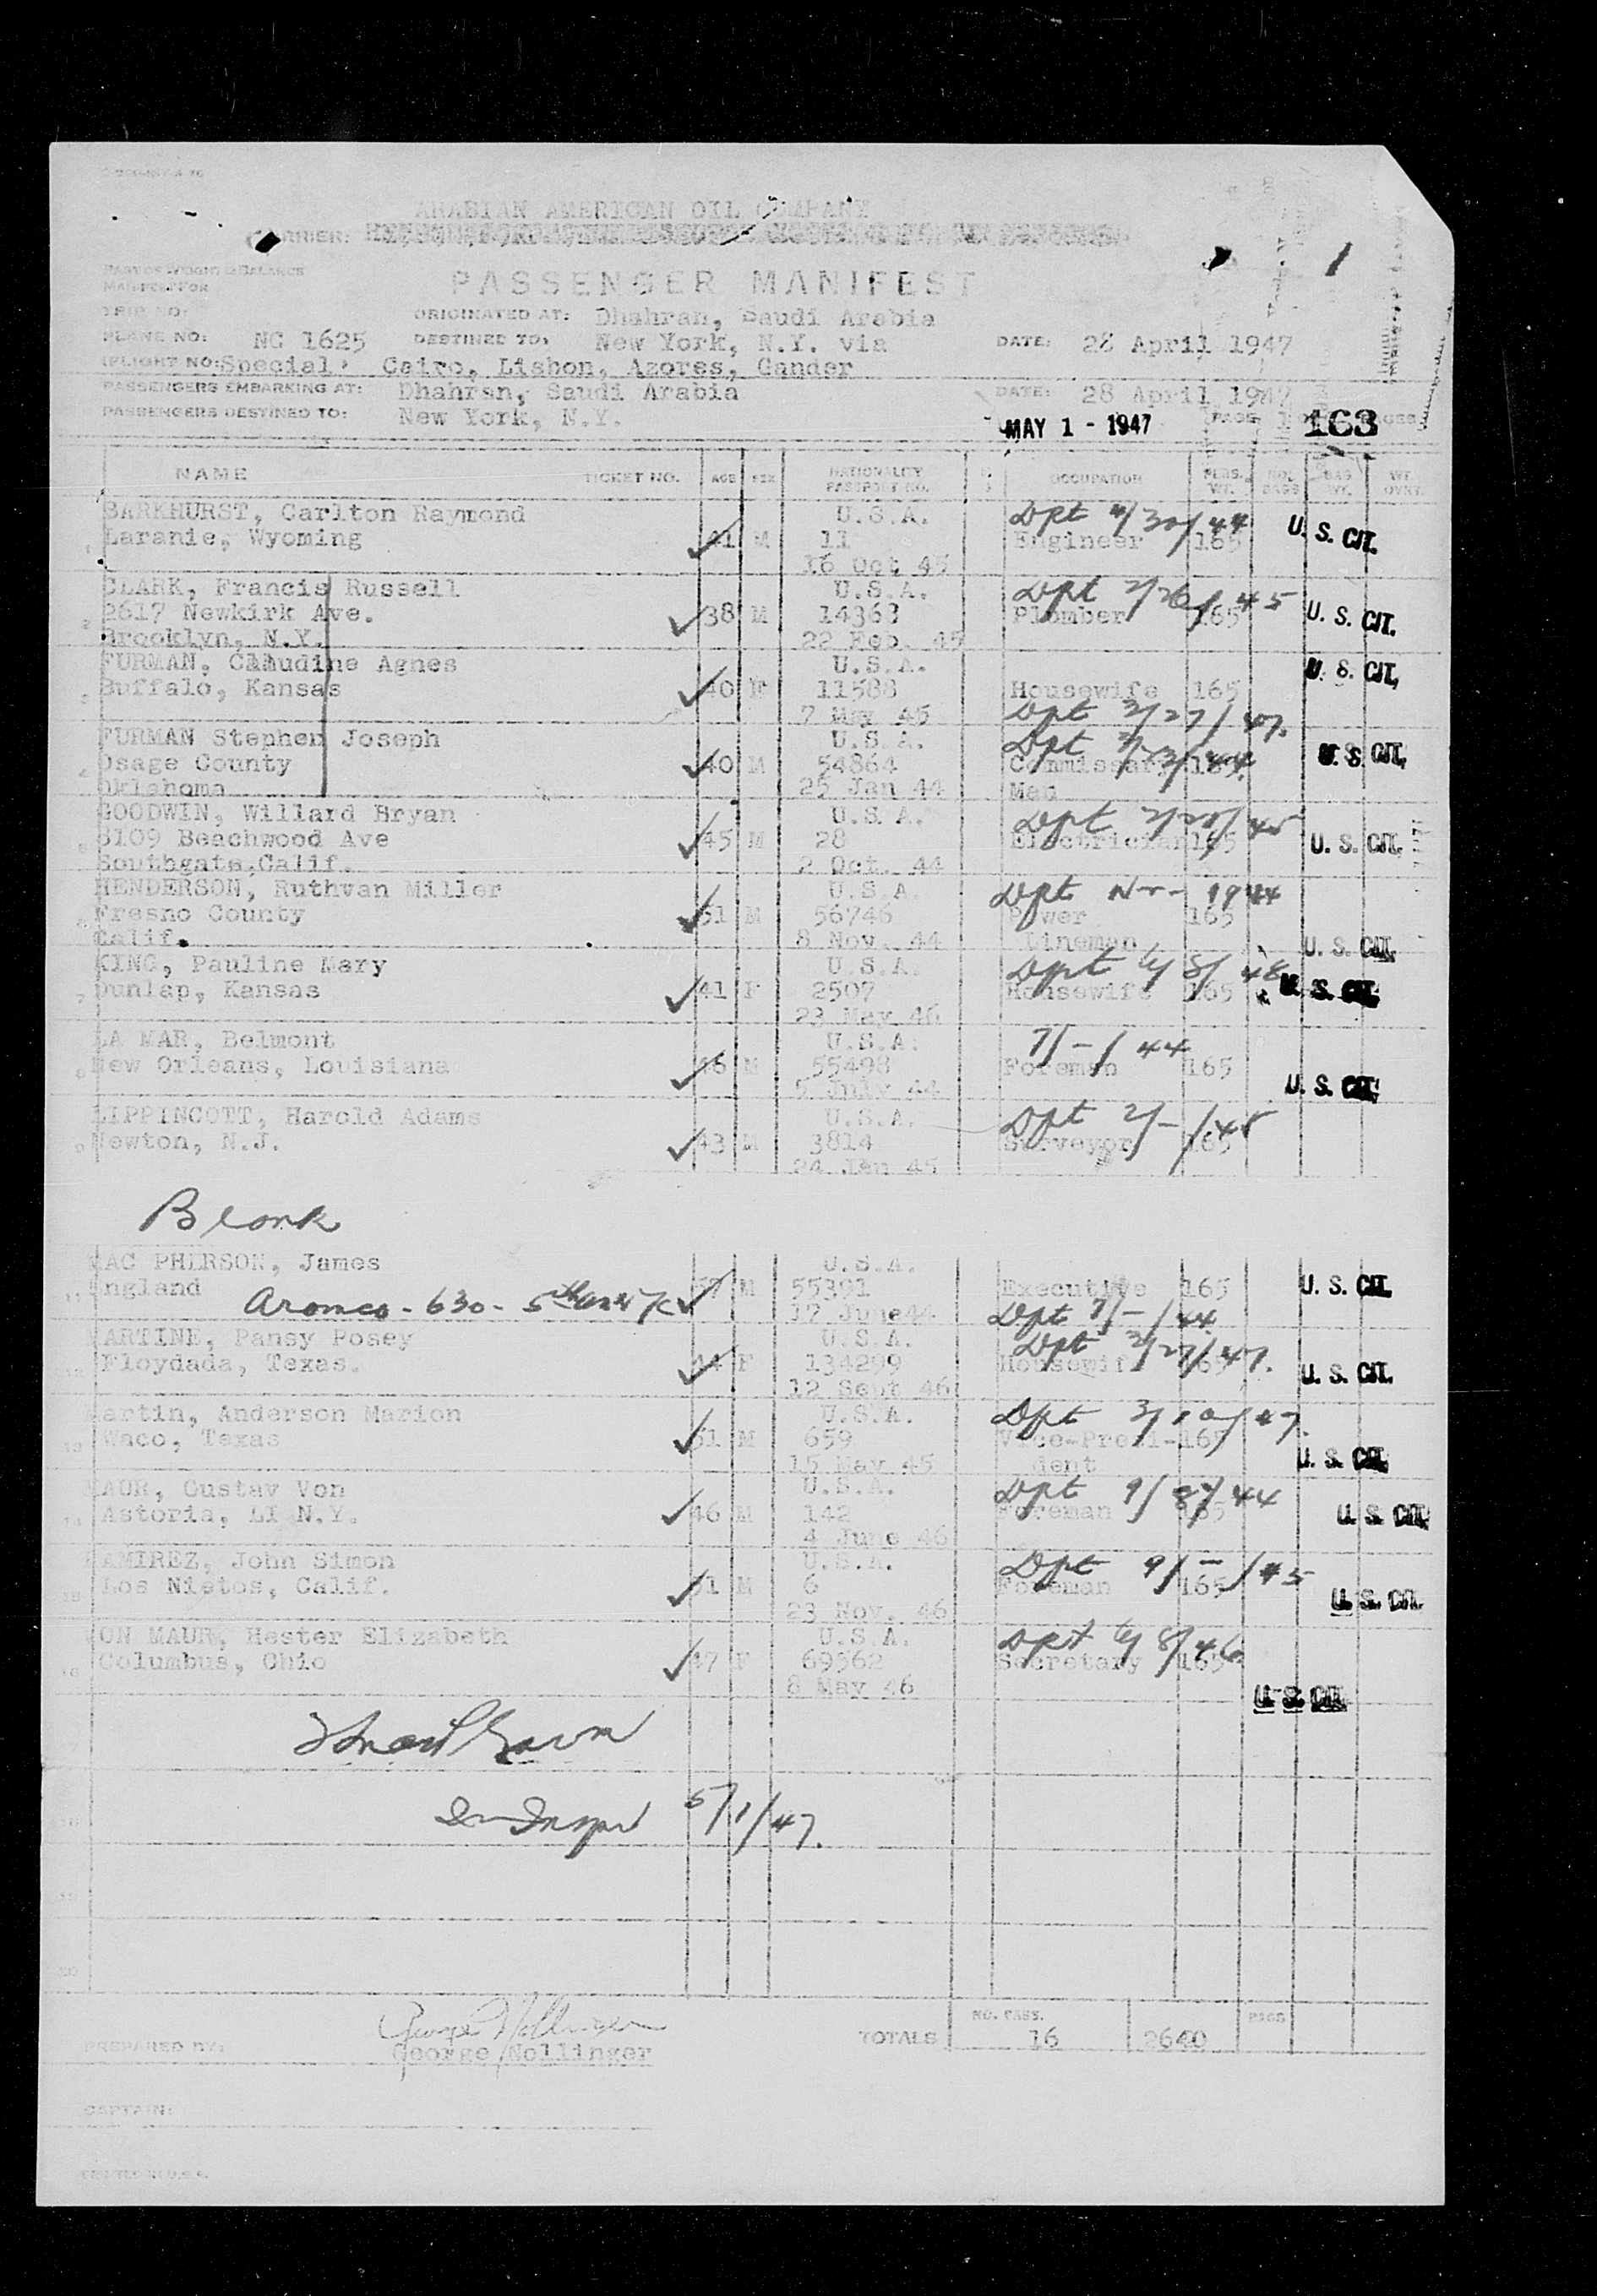 ARABIAN AMERICAN OIL COMPANY
CARRIER:
PART OF WEIGHT & BALANCE
MANIFEST FOR
PASSENGER MANIFEST
TRIP NO:
ORIGINATED AT: Dhahran, Saudi Arabia
PLANE NO: NC 1625 DESTINED TO: New York, N.Y. via DATE: 28 April 1947
FLIGHT NO: Special Cairo, Lisbon, Azores, Gander
PASSENGERS EMBARKING AT: Dhahran, Saudi Arabia DATE: 28 April 1947
PASSENGERS DESTINED TO: New York, N.Y.
MAY 1 - 1947 PAGE 1 163
NAME TICKET NO. AGE SEX NATIONALITY PASSPORT NO. OCCUPATION PERS. WT. NO. BAGS BAG WT. WT. OVRT.
BARKHURST, Carlton Raymond U.S.A. Dpt 4/30/44
1 Laramie, Wyoming 41 M 11 Engineer 165 U. S. CIT.
16 Oct 45
CLARK, Francis Russell U.S.A. Dpt 2/26/45
2 2617 Newkirk Ave. 38 M 14363 Plomber 165 U. S. CIT.
Brooklyn, N.Y. 22 Feb. 45
FURMAN, Claudine Agnes U.S.A. U. S. CIT.
3 Buffalo, Kansas 40 F 11588 Housewife 165
7 May 45 Dpt 2/27/47.
FURMAN Stephen Joseph U.S.A. Dpt
4 Osage County 40 M 54864 Commissary 165 U. S. CIT.
Oklahoma 25 Jan 44 Man
GOODWIN, Willard Bryan U.S.A. Dpt
5 8109 Beachwood Ave 45 M 28 Electrician 165 U. S. CIT.
Southgate, Calif. 2 Oct. 44
HENDERSON, Ruthvan Miller U.S.A. Dpt Nov - 1944
6 Fresno County 51 M 56746 Power 165
Calif. 8 Nov. 44 Lineman U. S. CIT.
KING, Pauline Mary U.S.A. Dpt
7 Dunlap, Kansas 41 F 2507 Housewife 165 U. S. CIT.
23 May 46
LA MAR, Belmont U.S.A. 7/-/44
8 New Orleans, Louisiana 46 M 55498 Foreman 165
5 July 44 U. S. CIT.
LIPPINCOTT, Harold Adams U.S.A. Dpt 2/-/45
9 Newton, N.J. 43 M 3814 Surveyor 165
24 Jan 45
Blank
MAC PHERSON, James U.S.A.
11 England 57 M 55391 Executive 165 U. S. CIT.
Aramco - 630 - 5th Ave NYC 17 June 44 Dpt 7/-/44
MARTINE, Pansy Posey U.S.A. Dpt 2/27/47.
12 Floydada, Texas. 44 F 134299 Housewife 165 U. S. CIT.
12 Sept 46
Martin, Anderson Marion U.S.A. Dpt 3/10/47.
13 Waco, Texas 51 M 659 Vice-Presi- 165
15 May 45 dent U. S. CIT.
MAUR, Gustav Von U.S.A. Dpt
14 Astoria, LI N.Y. 46 M 142 Foreman 165 U. S. CIT.
4 June 46
RAMIREZ, John Simon U.S.A. Dpt 9/-/45
15 Los Nietos, Calif. 51 M 6 Foreman 165 U. S. CIT.
23 Nov. 46
VON MAUR, Hester Elizabeth U.S.A. Dpt
16 Columbus, Ohio 47 F 69362 Secretary 165
8 May 46 U. S. CIT.
5/1/47.
TOTALS NO. PASS. 16 2640 PIGS
PREPARED BY: George Nollinger
CAPTAIN:
PRINTED IN U.S.A.